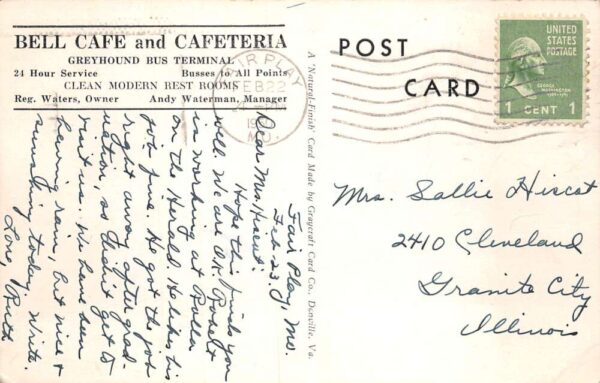 BELL CAFE and CAFETERIA
GREYHOUND BUS TERMINAL
24 Hour Service Busses to All Points
CLEAN MODERN REST ROOMS
Reg. Waters, Owner Andy Waterman, Manager
Fair Play, Mo.
Feb. 23.
Dear Mrs. Hiscot:
Hope this finds you
well. We are O.K.
is working at Rolla
on the Herald. He likes his
job fine. He got the job
right away after grad-
uation, so didn't get to
visit us. We have been
having rain, but nice &
sunshiny today. Write.
Love, Ruth
A 'Natural-Finish' Card Made by Graycraft Card Co., Danville, Va.
POST
CARD
FAIR PLAY
FEB 22
MO.
UNITED
STATES
POSTAGE
GEORGE WASHINGTON
1 CENT 1
Mrs. Sallie Hiscot
2410 Cleveland
Granite City
Illinois